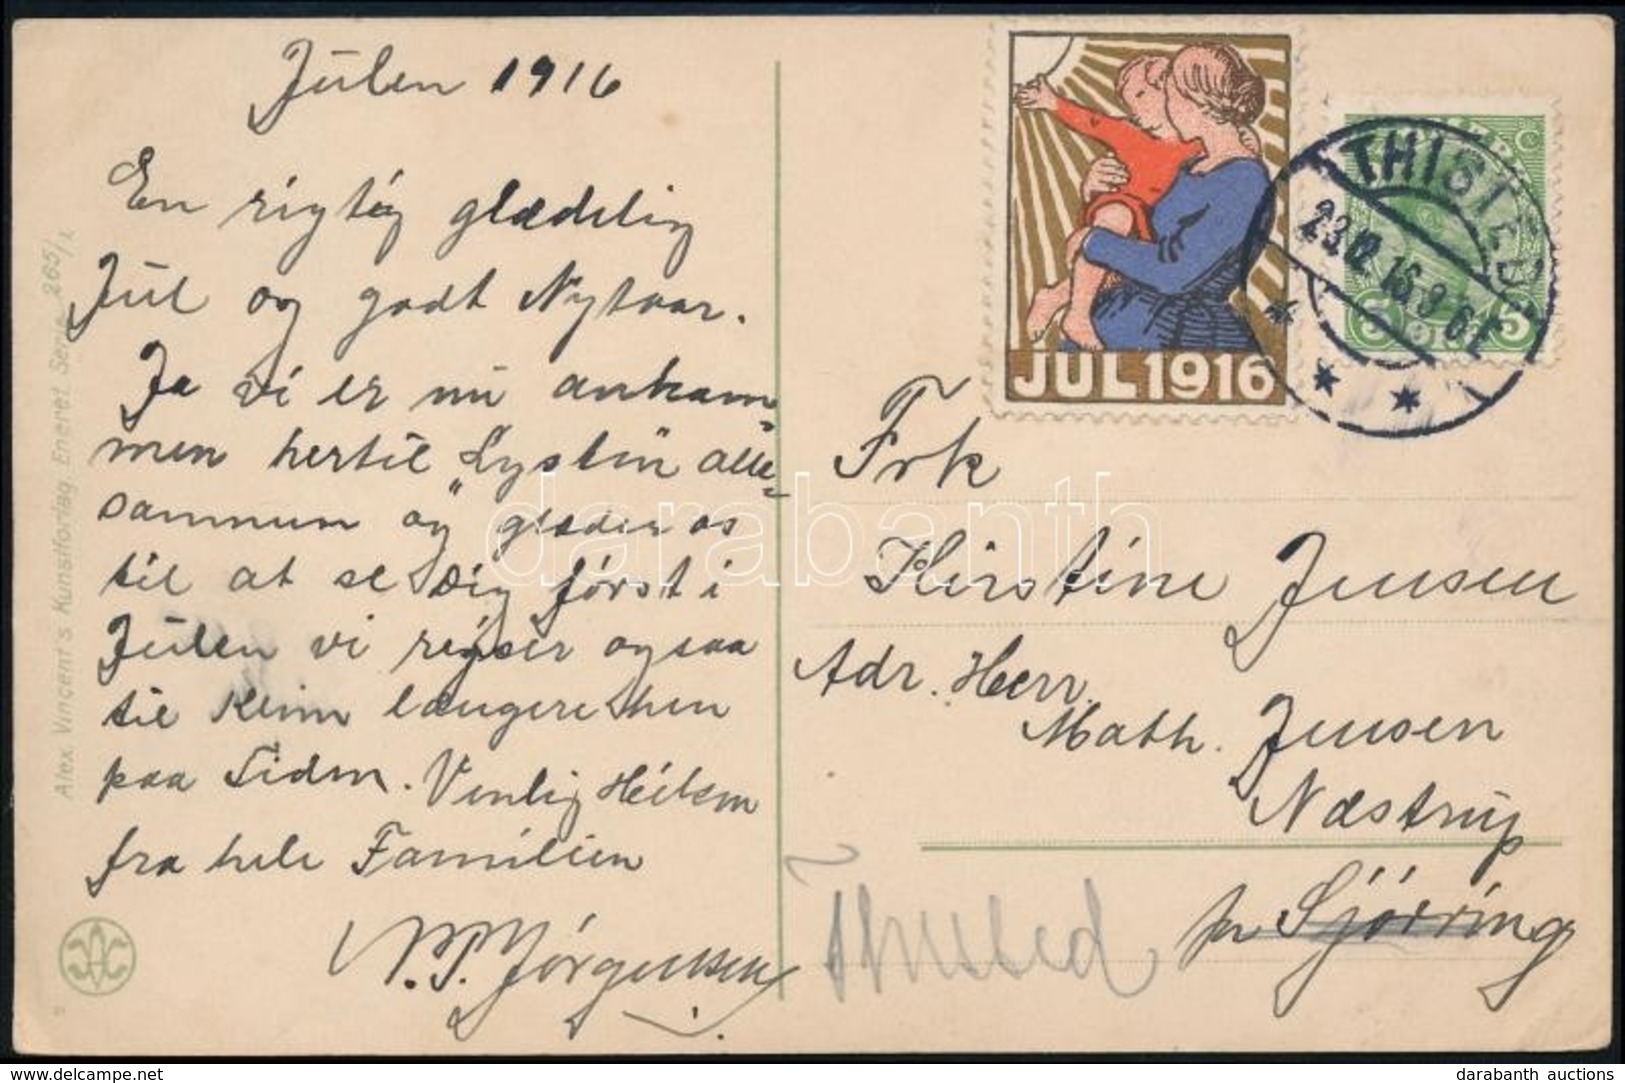 Julen 1916
En rigtig glædelig
Jul og godt Nytaar.
Ja vi er nu ankom
men hertil „Lystin alle-
sammum og glæder os
til at se Dig først i
Julen vi rejser ogsaa
til Klim længere hen
paa Tiden. Venlig Hilsen
fra hele Familien
P. Jørgensen
Alex Vincent's Kunstforlag Eneret Serie 265/1
JUL 1916
THISTED
23.12.16. 8-9 E
5 5
Frk
Kirstine Jensen
Adr. Herr.
Math. Jensen
Næstrup
pr Sjörring
Thisted
darabanth
delcampe.net
darabanth auctions